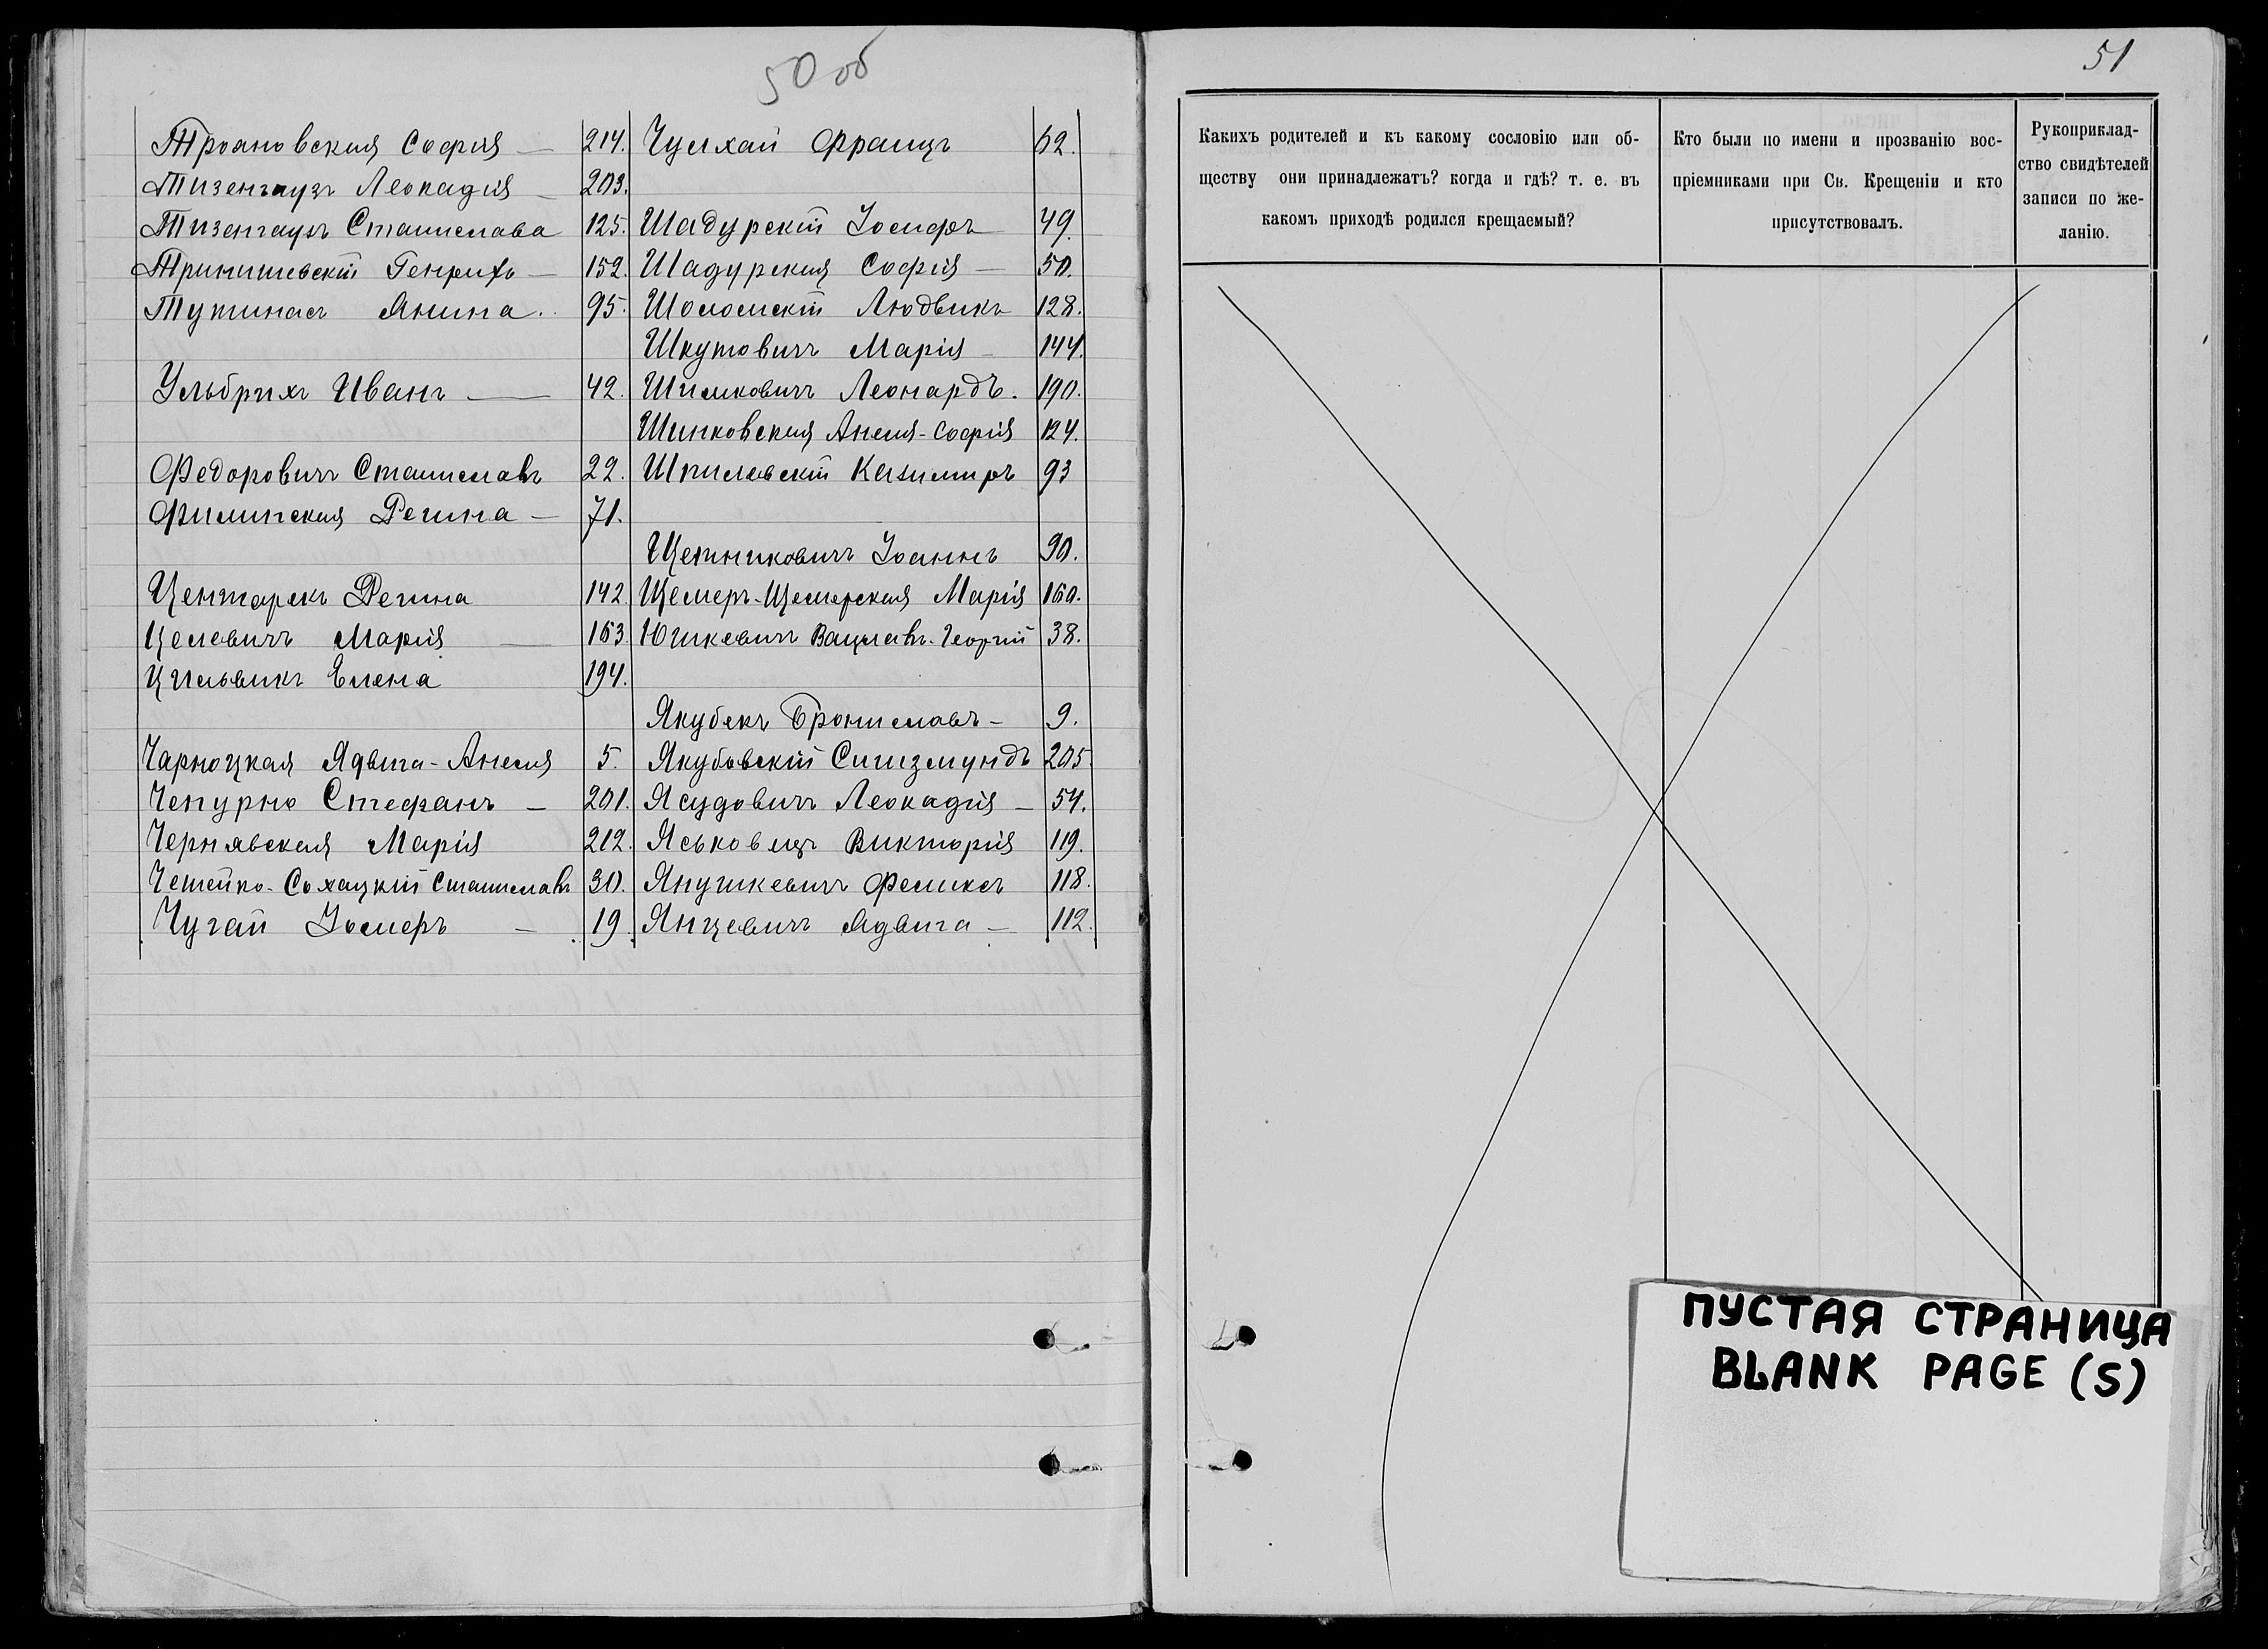 50 об
Трояновская София — 214.
Тизенгаузъ Леокадія — 203.
Тизенгаузъ Станислава 125.
Тринишевскій Генрихъ — 152.
Тутинасъ Янина. 95.
Ульбрихъ Иванъ — 42.
Федоровичъ Станиславъ 22.
Филипская Регина — 71.
Центарекъ Регина 142
Целевичъ Марія — 163.
Цильвикъ Елена 194.
Чарноцкая Ядвига-Анеля 5.
Чепурно Стефанъ — 201.
Чернявская Марія 212.
Чешейко-Сохацкій Станиславъ 30.
Чугай Іосифъ — 19.
Чулхай Францъ 62.
Шадурскій Іосифъ 49.
Шадурская Софія — 50.
Шоломскій Людвикъ 128.
Шкутовичъ Марія — 144.
Шимковичъ Леонардъ. 190.
Шинковская Анеля-Софія 124.
Шпилевскій Казимиръ 93
Щетниковичъ Іоаннъ 90.
Щемеръ-Щемерская Марія 160.
Юшкевичъ Вацлавъ-Георгій 38.
Якубекъ Брониславъ — 9.
Якубовскій Сигизмундъ 205.
Ясудовичъ Леокадія — 54.
Яськовецъ Викторія 119.
Янушкевичъ Феликсъ 118.
Янцевичъ Ядвига — 112.
51
Какихъ родителей и къ какому сословію или об-
ществу они принадлежатъ? когда и гдѣ? т. е. въ
какомъ приходѣ родился крещаемый?
Кто были по имени и прозванію вос-
пріемниками при Св. Крещеніи и кто
присутствовалъ.
Рукоприклад-
ство свидѣтелей
записи по же-
ланію.
ПУСТАЯ СТРАНИЦА
BLANK PAGE (S)